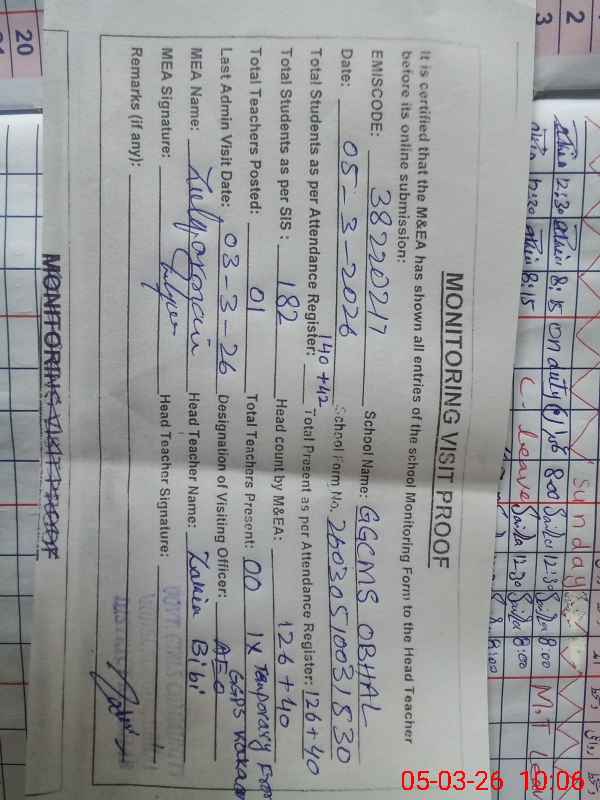 MONITORING VISIT PROOF
It is certified that the M&EA has shown all entries of the school Monitoring Form to the Head Teacher
before its online submission:
EMISCODE: 38220217 School Name: GGCMS OBHAL
Date: 05-3-2026 School Form No. 26030510031530
Total Students as per Attendance Register: 140+42 Total Present as per Attendance Register: 126+40
Total Students as per SIS: 182 Head count by M&EA: 126+40
Total Teachers Posted: 01 Total Teachers Present: 00 1x Temporary from
Last Admin Visit Date: 03-3-26 Designation of Visiting Officer: AEO GGPS
MEA Name: Zulqarnain Head Teacher Name: Zakia Bibi
MEA Signature: Head Teacher Signature:
Remarks (if any):
MONITORING VISIT PROOF
2
3
20
Sunday
12:30 8:15 on duty 8:00 12:30 8:00 M.T Leave
12:30 8:15 C. leave 12:30 8:00
05-03-26 10:06